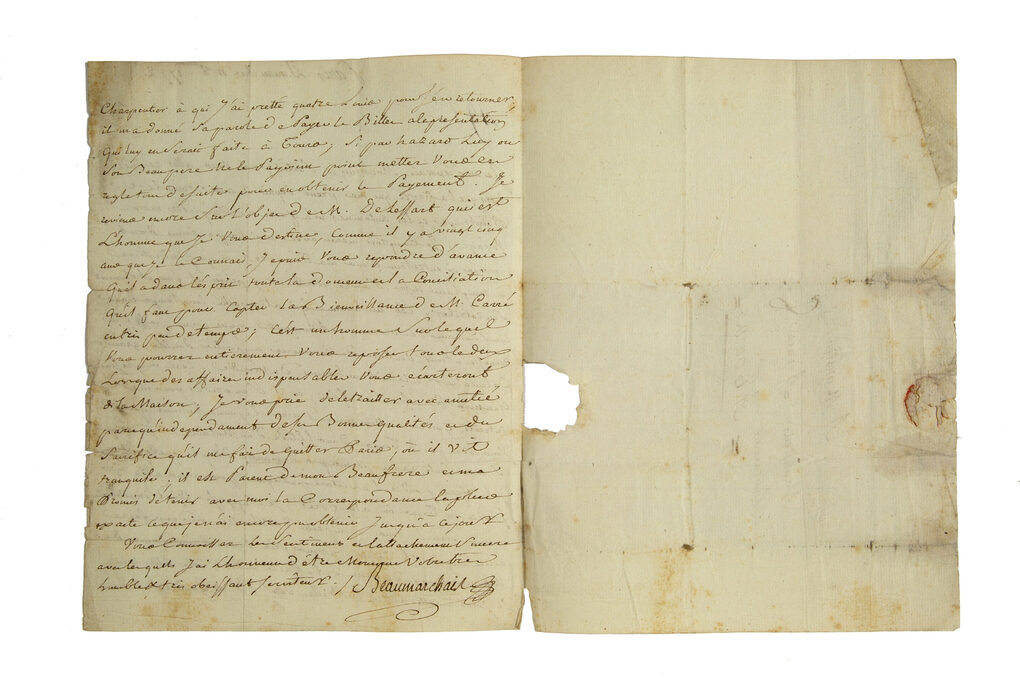 Charpentier à qui J'ai pretté quatre Louis pour s'en retourner,
il m'a donné sa parole de Payer le Billet a la presentation
Qui luy en Serait faite à Tours; Si par hazard Luy ou
Son Beaupere Ne le Payaient point metter Vous en
regle tout de suite pour en obtenir le Payement. Je
reviens encore Sur L'objet de M. De Lessart qui est
L'homme que Je Vous destine, comme il y a vingt cinq
ans que Je le Connais, Je puis Vous repondre d'avance
Qu'il a dans l'esprit toute la dose de la Conciliation
Qu'il faut pour Capter La Bienveillance de M. Carré
en tres peu de temps; C'est un homme Sur lequel
Vous pourrez entierement Vous reposer tous les deux
Lorsque des affaires indispensables Vous ecarteront
de la Maison; Je vous prie de le traitter avec amitié
parce qu'independament de ses Bonnes qualités et du
Sacrifice qu'il me fait de Quitter Paris, où il vit
tranquile, il est Parent de mon Beaufrere et m'a
Promis de tenir avec moi La Correspondance la plus
exacte ce que je n'ai encore pu obtenir Jusqu'à ce jour.
Vous Connaissez les Sentimens et l'attachement Sincere
avec lesquels J'ai L'honneur d'être Monsieur Votre tres
humble & tres obeissant serviteur. /.
Beaumarchais